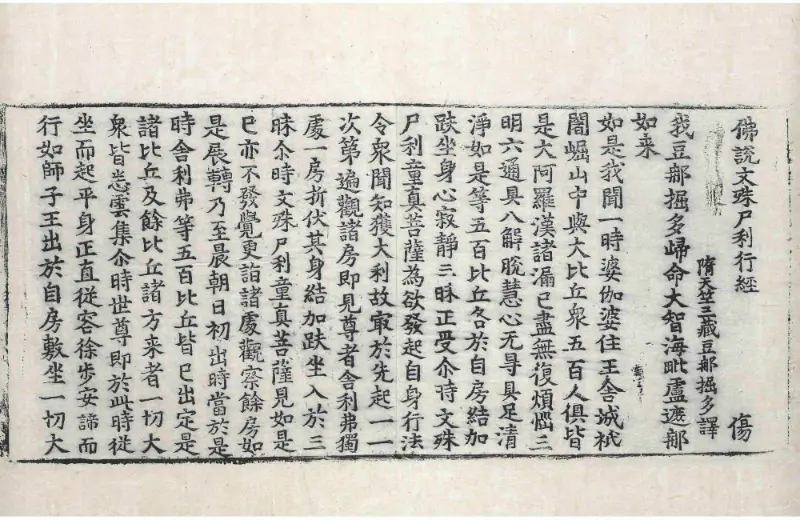 佛說文殊尸利行經　傷
隋天竺三藏豆那掘多譯
我豆那掘多歸命大智海毗盧遮那
如来
如是我聞一時婆伽婆住王舍城祇
闍崛山中與大比丘衆五百人俱皆
是大阿羅漢諸漏已盡無復煩惱三
明六通具八解脫慧心无㝵具足清
淨如是等五百比丘各於自房結加
趺坐身心寂靜三昧正受尒時文殊
尸利童真菩薩為欲發起自身行法
令衆聞知獲大利故冣於先起一一
次第遍觀諸房即見尊者舍利弗獨
處一房折伏其身結加趺坐入於三
昧尒時文殊尸利童真菩薩見如是
已亦不發覺更詣諸處觀察餘房如
是展轉乃至晨朝日初出時當於是
時舍利弗等五百比丘皆已出定是
諸比丘及餘比丘諸方来者一切大
衆皆悉雲集尒時世尊即於此時從
坐而起平身正直從容徐步安諦而
行如師子王出於自房敷坐一切大